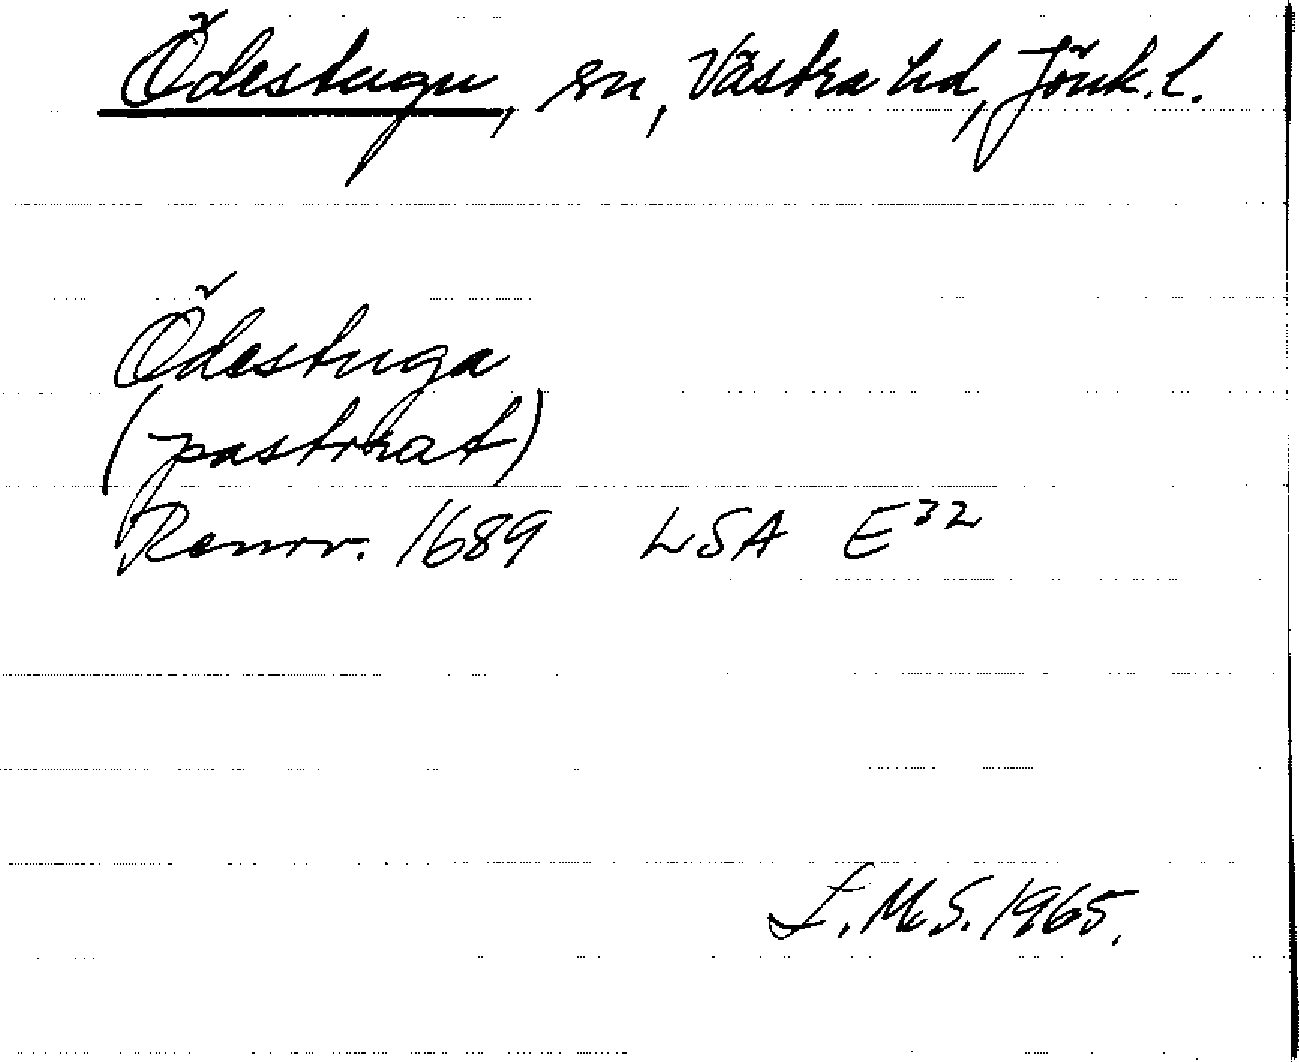 Ödestugu, sn, Västra hd, Jönk. l.
Ödestuga
(pastorat)
Renov. 1689 LSA E32
I. M. S. 1965.